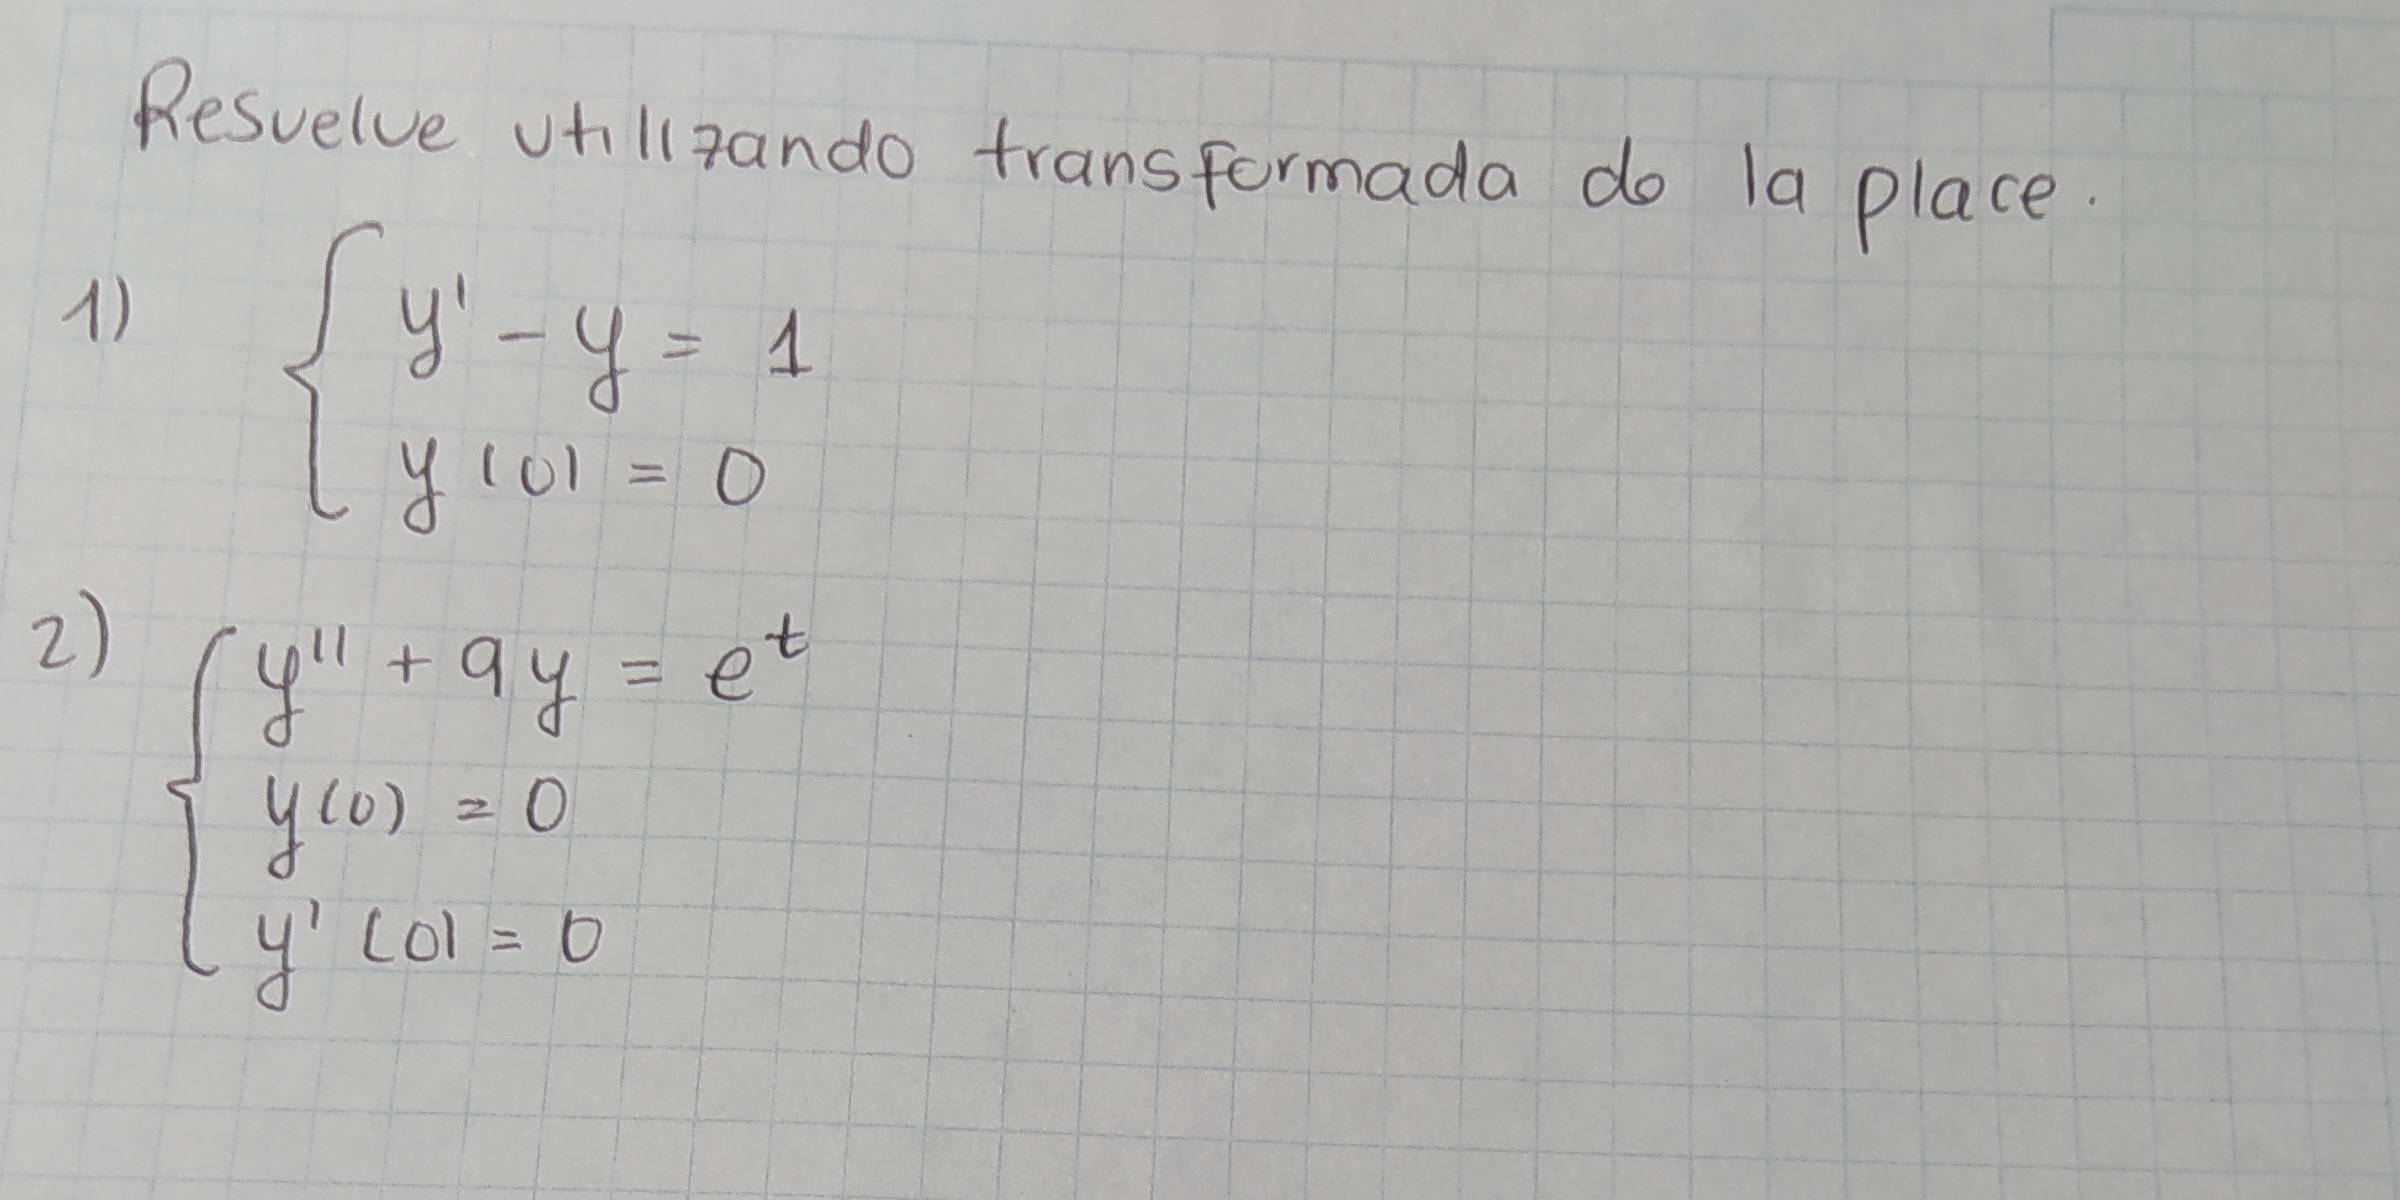 Resuelve utilizando transformada de la place.
1) y' - y = 1
y(0) = 0
2) y'' + 9y = e^t
y(0) = 0
y'(0) = 0